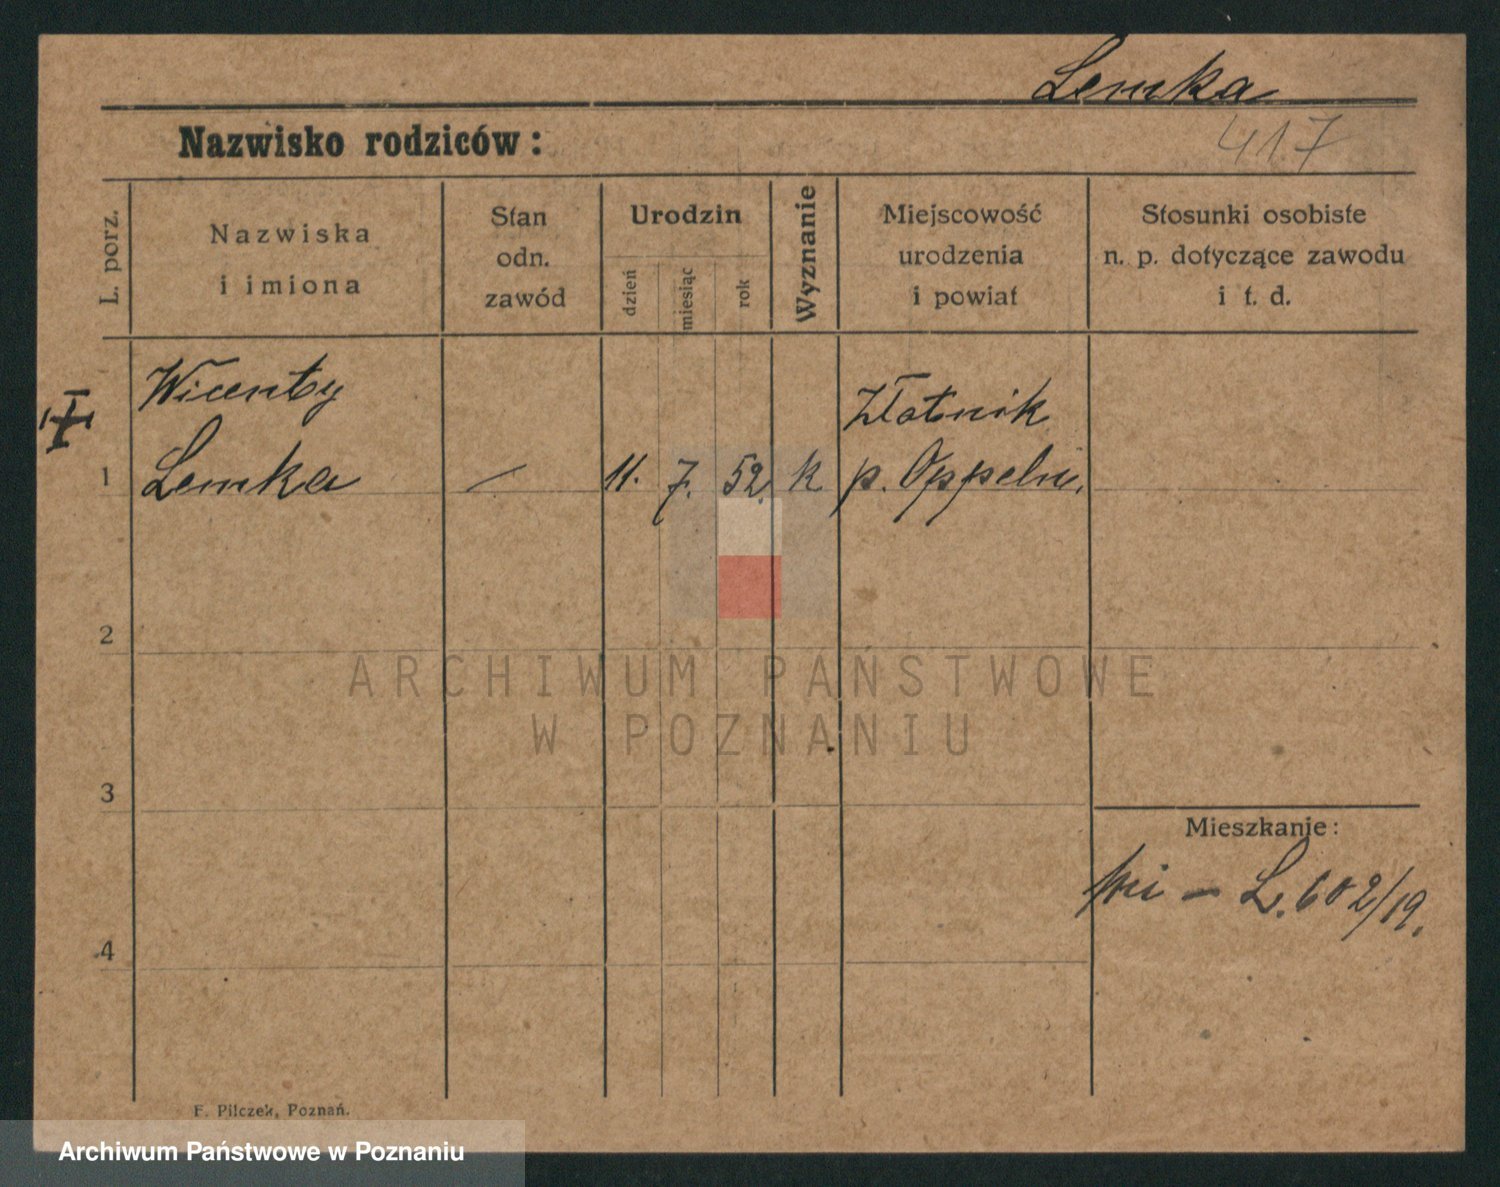 Lemka
417
Nazwisko rodziców:
L. porz.
Nazwiska
i imiona
Stan
odn.
zawód
Urodzin
dzień
miesiąc
rok
Wyznanie
Miejscowość
urodzenia
i powiat
Stosunki osobiste
n. p. dotyczące zawodu
i t. d.
1
Wicenty
Lemka
—
11.
7.
52.
k
Złotnik
p. Oppeln.
2
3
4
Mieszkanie:
— L. 602/19.
F. Pilczek, Poznań.
ARCHIWUM PAŃSTWOWE
W POZNANIU
Archiwum Państwowe w Poznaniu